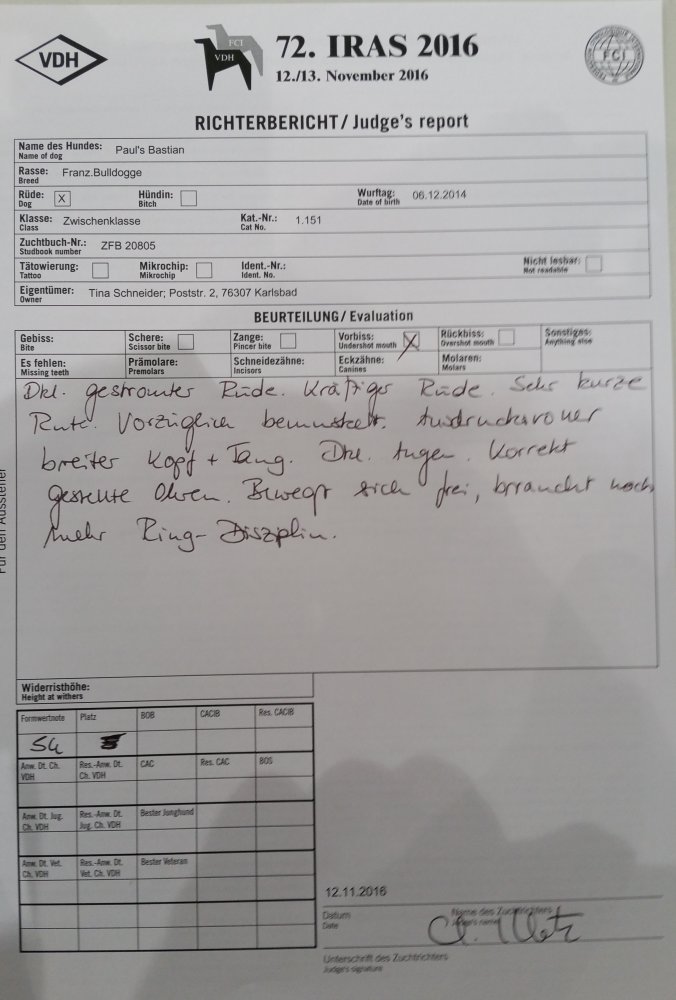 VDH
FCI
VDH
72. IRAS 2016
12./13. November 2016
FCI
RICHTERBERICHT / Judge's report
Name des Hundes: Paul's Bastian
Name of dog
Rasse: Franz.Bulldogge
Breed
Rüde: X Hündin: Wurftag: 06.12.2014
Dog Bitch Date of birth
Klasse: Zwischenklasse Kat.-Nr.: 1.151
Class Cat No.
Zuchtbuch-Nr.: ZFB 20805
Studbook number
Tätowierung: Mikrochip: Ident.-Nr.: Nicht lesbar:
Tattoo Mikrochip Ident. No. Not readable
Eigentümer: Tina Schneider; Poststr. 2, 76307 Karlsbad
Owner
BEURTEILUNG / Evaluation
Gebiss: Schere: Zange: Vorbiss: X Rückbiss: Sonstiges:
Bite Scissor bite Pincer bite Undershot mouth Overshot mouth Anything else
Es fehlen: Prämolare: Schneidezähne: Eckzähne: Molaren:
Missing teeth Premolars Incisors Canines Molars
Dkl. gestromter Rüde. Kräftiger Rüde. Sehr kurze
Rute. Vorzüglich bemuskelt. Ausdrucksvoller
breiter Kopf + Fang. Dkl. Augen. Korrekt
gestellte Ohren. Bewegt sich frei, braucht noch
mehr Ring-Disziplin.
Für den Aussteller
Widerristhöhe:
Height at withers
Formwertnote Platz BOB CACIB Res. CACIB
SG
Anw. Dt. Ch. Res.-Anw. Dt. CAC Res. CAC BOS
VDH Ch. VDH
Anw. Dt. Jug. Res.-Anw. Dt. Bester Junghund
Ch. VDH Jug. Ch. VDH
Anw. Dt. Vet. Res.-Anw. Dt. Bester Veteran
Ch. VDH Vet. Ch. VDH
12.11.2016
Datum Name des Zuchtrichters
Date Judge's name
Unterschrift des Zuchtrichters
Judge's signature